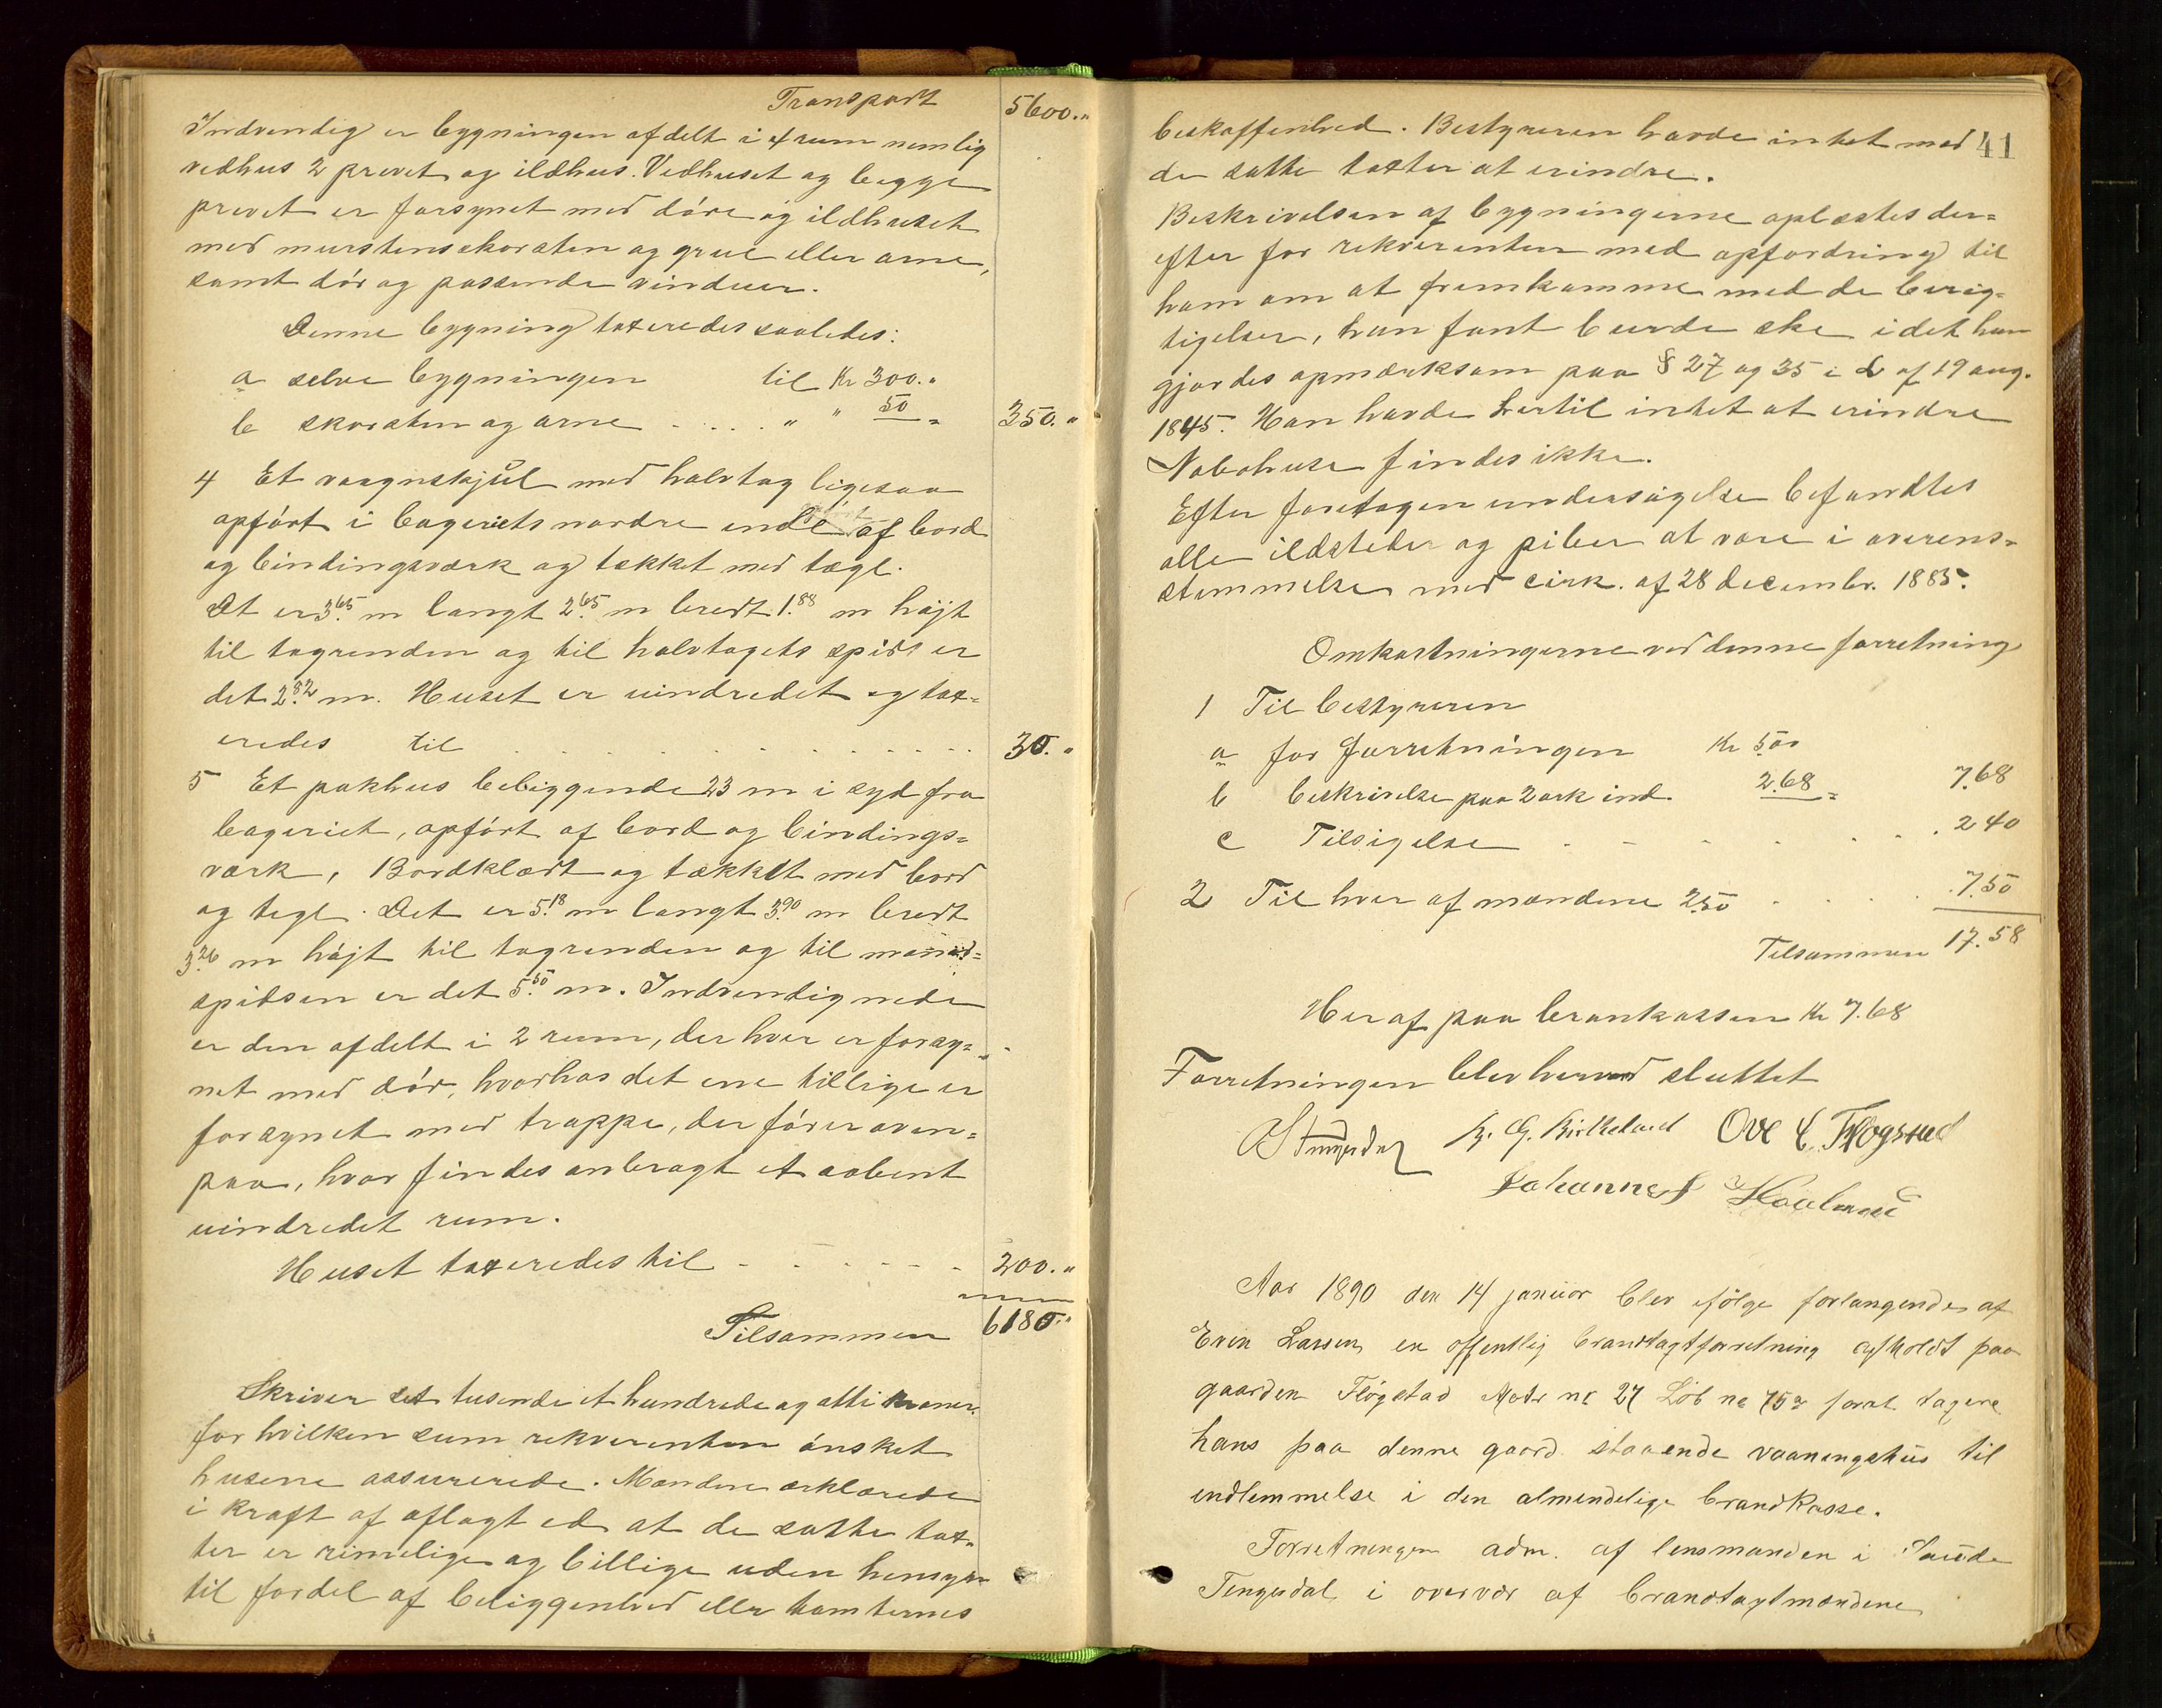 Transport 5600.„
Indvendig er bygningen afdelt i 4 rum nemlig
vedhus 2 prevet og ildhus. Vedhuset og begge
prevet er forsynet med dóre og ildhuset
med murstensskorsten og grue eller arne,
samt dór og passende vinduer.
Denne bygning taxeredes saaledes:
a selve bygningen til Kr 300.„
b skorsten og arne . . . . „ „ 50 = 350.„
4 Et vaagnskjul med halvtag ligesaa
opfórt i bageriets nordre ende af bord
og bindingsværk og tækket med tægl.
Det er 3.65 m langt 2.65 m bredt 1.88 m hójt
til tagrenden og til halvtagets spids er
det 2.82 m. Huset er uindredet og tax=
eredes til . . . . . . . . . . 30.„
5 Et pakhus beliggende 23 m i syd fra
bageriet, opfórt af bord og bindings=
værk, Bordklædt og tækket med bord
og tegl. Det er 5.18 m langt 3.90 m bredt
3.26 m hójt til tagrenden og til mónid=
spidsen er det 5.50 m. Indvendig nede
er den afdelt i 2 rum, der hver er forsy=
net med dór, hvorhos det ene tillige er
forsynet med trappe, der fórer oven=
paa, hvor findes anbragt et aabent
uindredet rum.
Huset taxeredes til - - - - - - 200.„
Tilsammen 6180.„
Skriver sex tusende et hundrede og atti kroner
for hvilken sum rekvirenten ónsket
husene assurerede. Mændene erklærede
i kraft af aflagt ed at de satte tax=
ter er rimelige og billige uden hensyn
til fordel af beliggenhed eller tomternes
41
beskaffenhed. Bestyreren havde intet med
de satte taxter at erindre.
Beskrivelsen af bygningerne oplæstes der=
efter for rekvirenten med opfordring til
ham om at fremkomme med de berig=
tigelser, han fant burde ske idet han
gjordes opmærksom paa § 27 og 35 i L af 19 aug.
1845. Han havde hertil intet at erindre
Nabohuse findes ikke.
Efter foretagen undersógelse befandtes
alle ildsteder og piber at være i overens=
stemmelse med cirk. af 28 decembr. 1885.
Omkostningerne ved denne forretning
1 Til bestyreren
a for forretningen Kr 5.00
b beskrivelse paa 2 ark ind. 2.68 = 7.68
c Tilsigelse - - - - - - . 2 40
2 Til hver af mændene 2.50 . . . . 7.50
Tilsammen 17.58
Heraf paa brankassen Kr 7.68
Forretningen blev herved sluttet
K. G. Birkeland Ove L. Flógstad
Johannes
Aar 1890 den 14 januar blev ifølge forlangende af
Even Larsen en offentlig brandtaxtforretning afholdt paa
gaarden Flógstad Matr nr 27 Løb nr 75a foret. tagere
hans paa denne gaard staaende vaaningshus til
indlemmelse i den almindelige brandkasse.
Forretningen adm. af lensmanden i Saude
Tengesdal i overvær af brandtaxtmændene